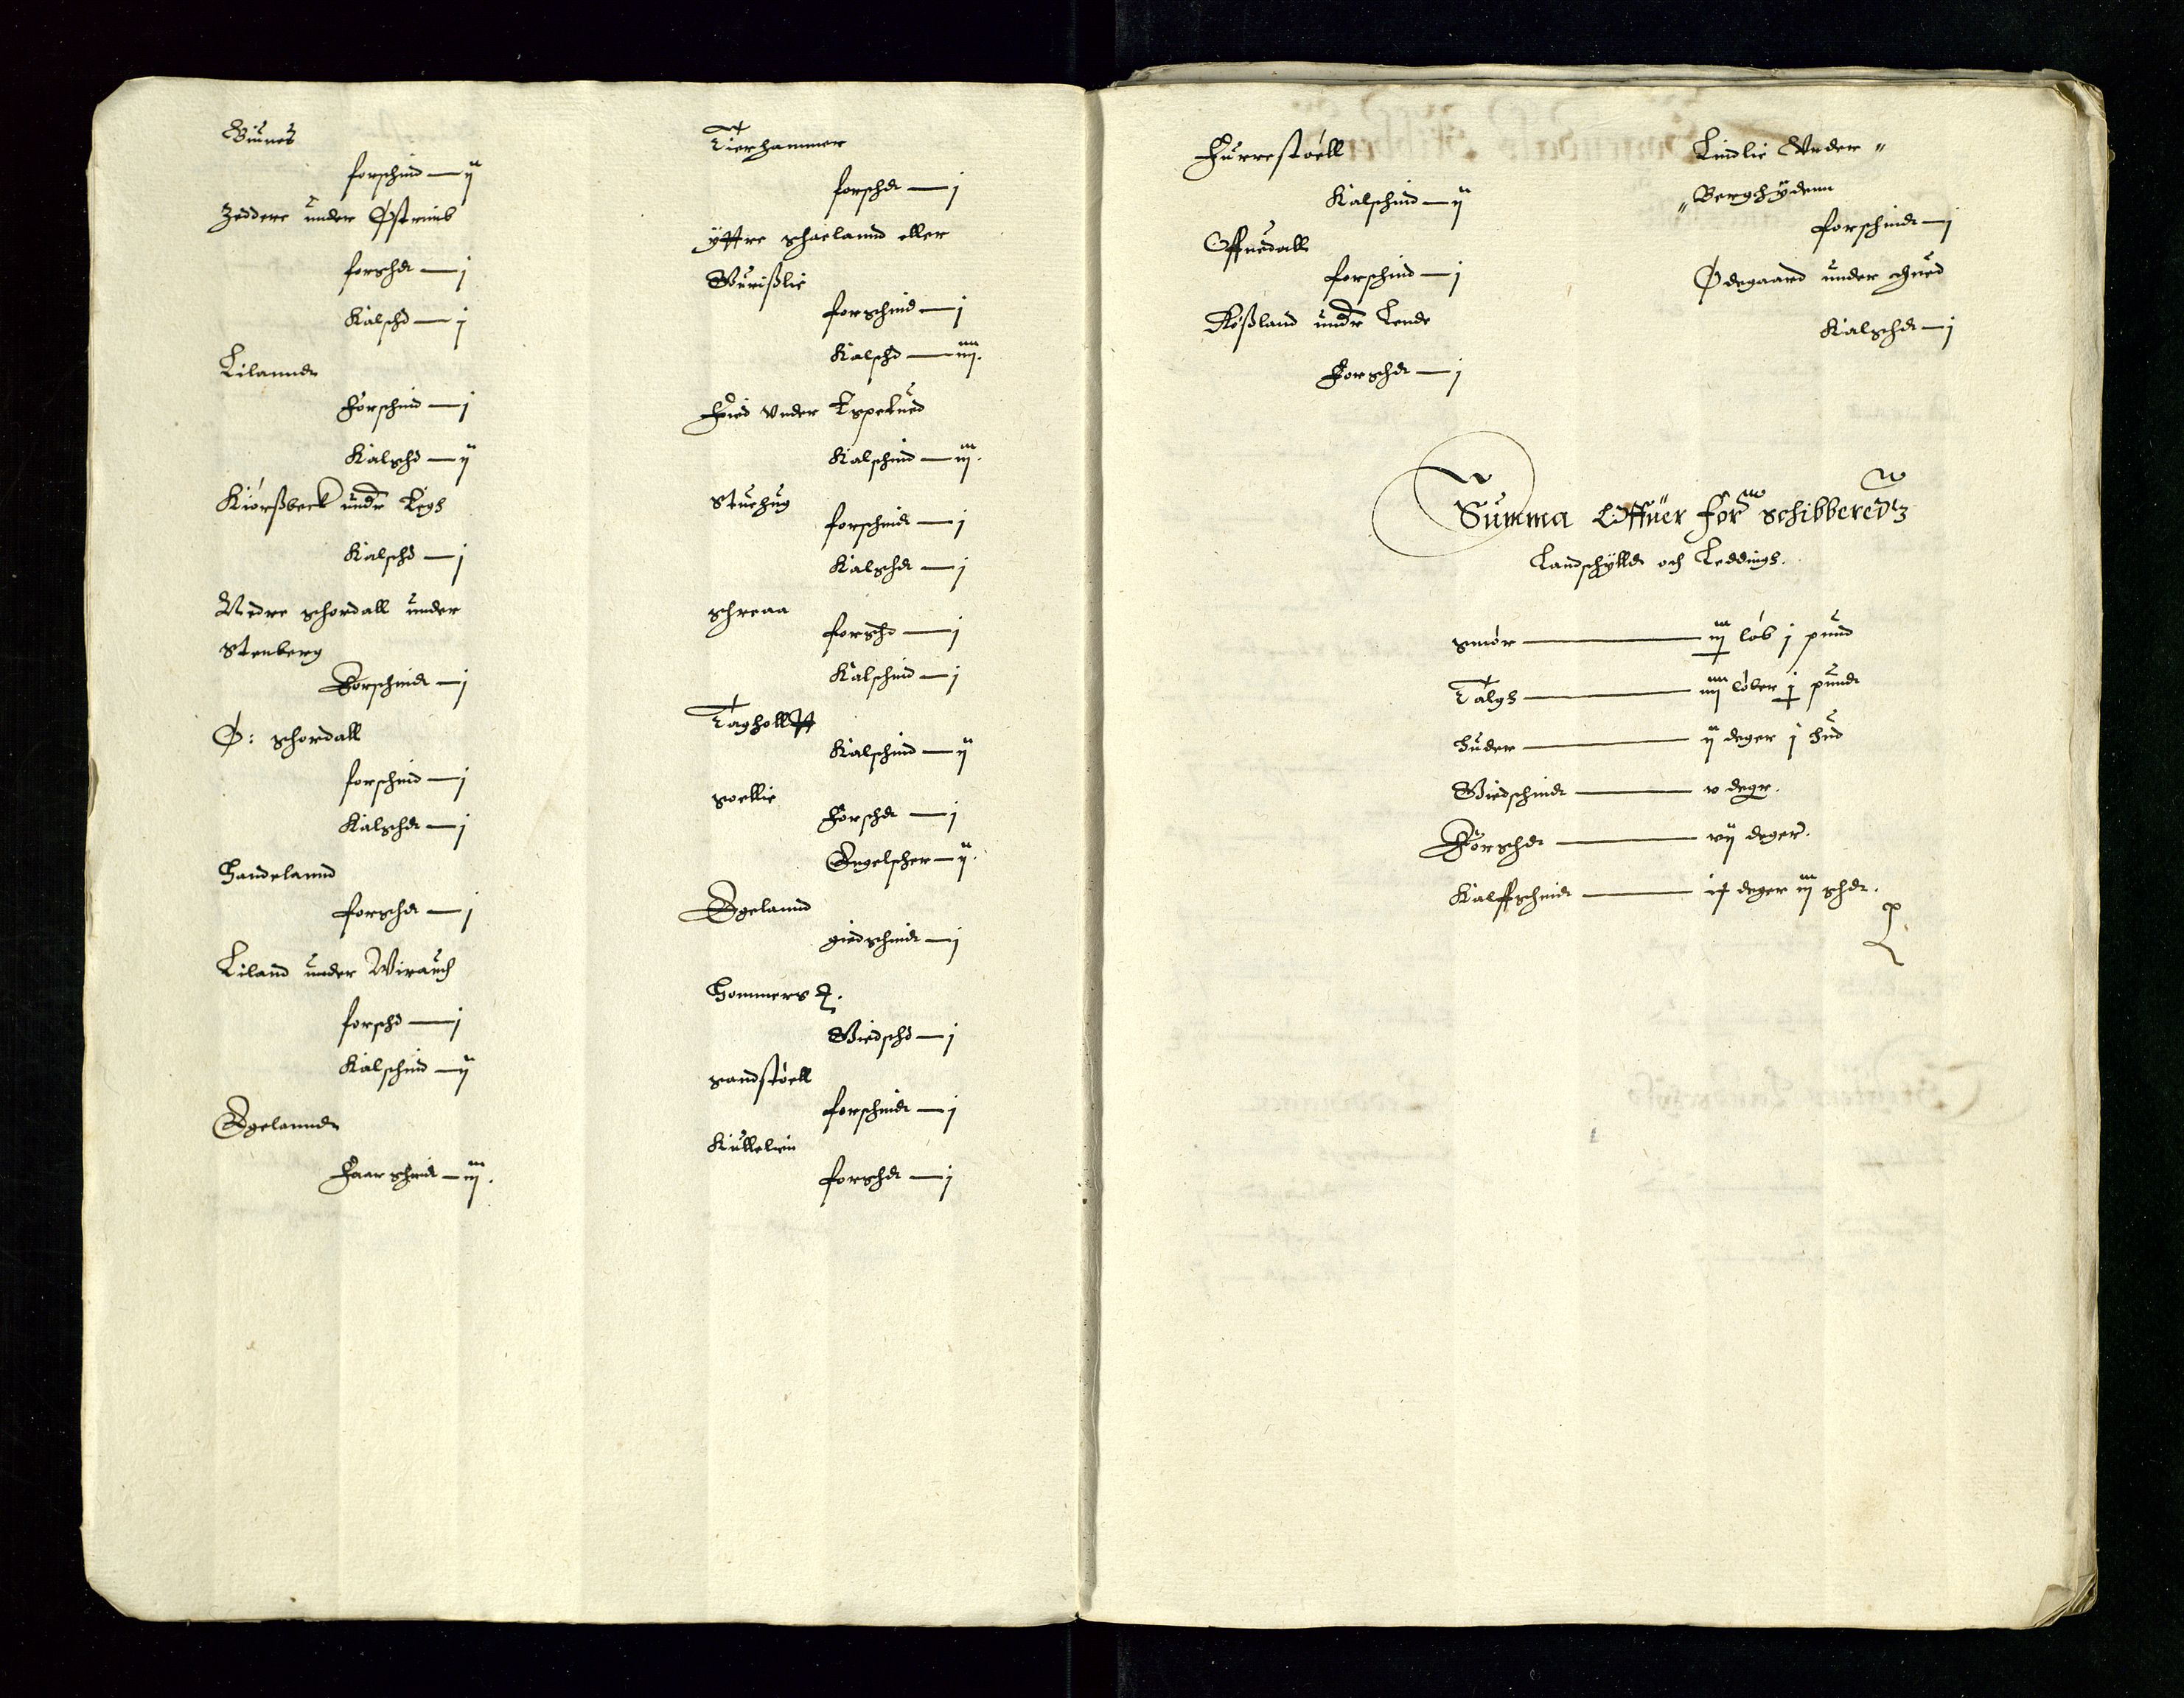 Giunes
forschind — ij
Zeddere under Østrimb
forschd — j
Kalschd — j
Lilannd
Forschind — j
Kalschd — ij
Kiorßbeck undr
Kalschd — j
Nedre schordall under
Stenberg
Forschind — j
Ø: schordall
forschind — j
Kalschd — j
Handelannd
forschd — j
Liland under Virauch
forschd — j
Kalschind — ij
Egelannd
Faarschind — iij.
Tierhammer
forschd — j
ÿttre schaelannd eller
forschind — j
Kalschd — iiij.
Fied vnder Espetued
Kalschind — iij.
Stuehug
forschind — j
Kalschd — j
schreaa
forschd — j
Kalschind — j
Taghollt
Kalschind — ij
soellie
Forschd — j
Engelscher — ij.
Egelannd
giedschind — j
Hommers
Giedschd — j
sandstøell
forschind — j
Kullelrin
forschd — j
Furrestøell
Kalschind — ij
Offuedall
forschind — j
Røßland undr Lende
Forschd — j
Lindlie Vnder "
" Berghÿdenn
forschind — j
Ødegaard under
Kalschd — j
Summa Offuer for schibberedtz
Landschÿlld och Leddings.
smør — iij løb j pund
Talgh — iiij løber j pund
huder — ij deger j hud
Giedschind — v degr.
Forschd — vij deger.
Kalffschind — 17 deger iij schd.